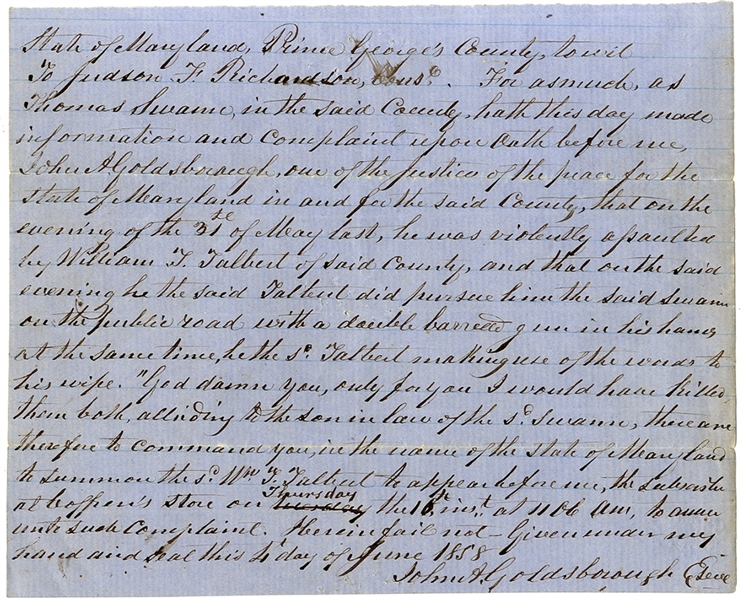 State of Maryland, Prince George's County, to wit
To Judson F. Richardson, Consᵉ. For asmuch, as
Thomas Swann, in the said County, hath this day made
information and Complaint upon Oath before me,
John A Goldsborough, one of the justices of the peace for the
State of Maryland in and for the said County, that on the
evening of the 31st of May last, he was violently assaulted
by William T. Talbert of said County, and that on the said
evening he the said Talbert did pursue him the said Swann
on the public road with a double barreed gun in his hand
at the same time, he the sᵈ. Talbert making use of the words to
his wife. "God damn you, only for you I would have killed
them both, alluding to the son in law of the sᵈ. Swann, these are
therefore to command you, in the name of the State of Maryland
to summon the sᵈ. Wm. T. Talbert to appear before me, the subscriber
Thursday
at store on the 10th inst. at 11 o'c am, to answer
unto such Complaint. Herein fail not - Given under my
hand and seal this 4th day of June 1858
John A Goldsborough